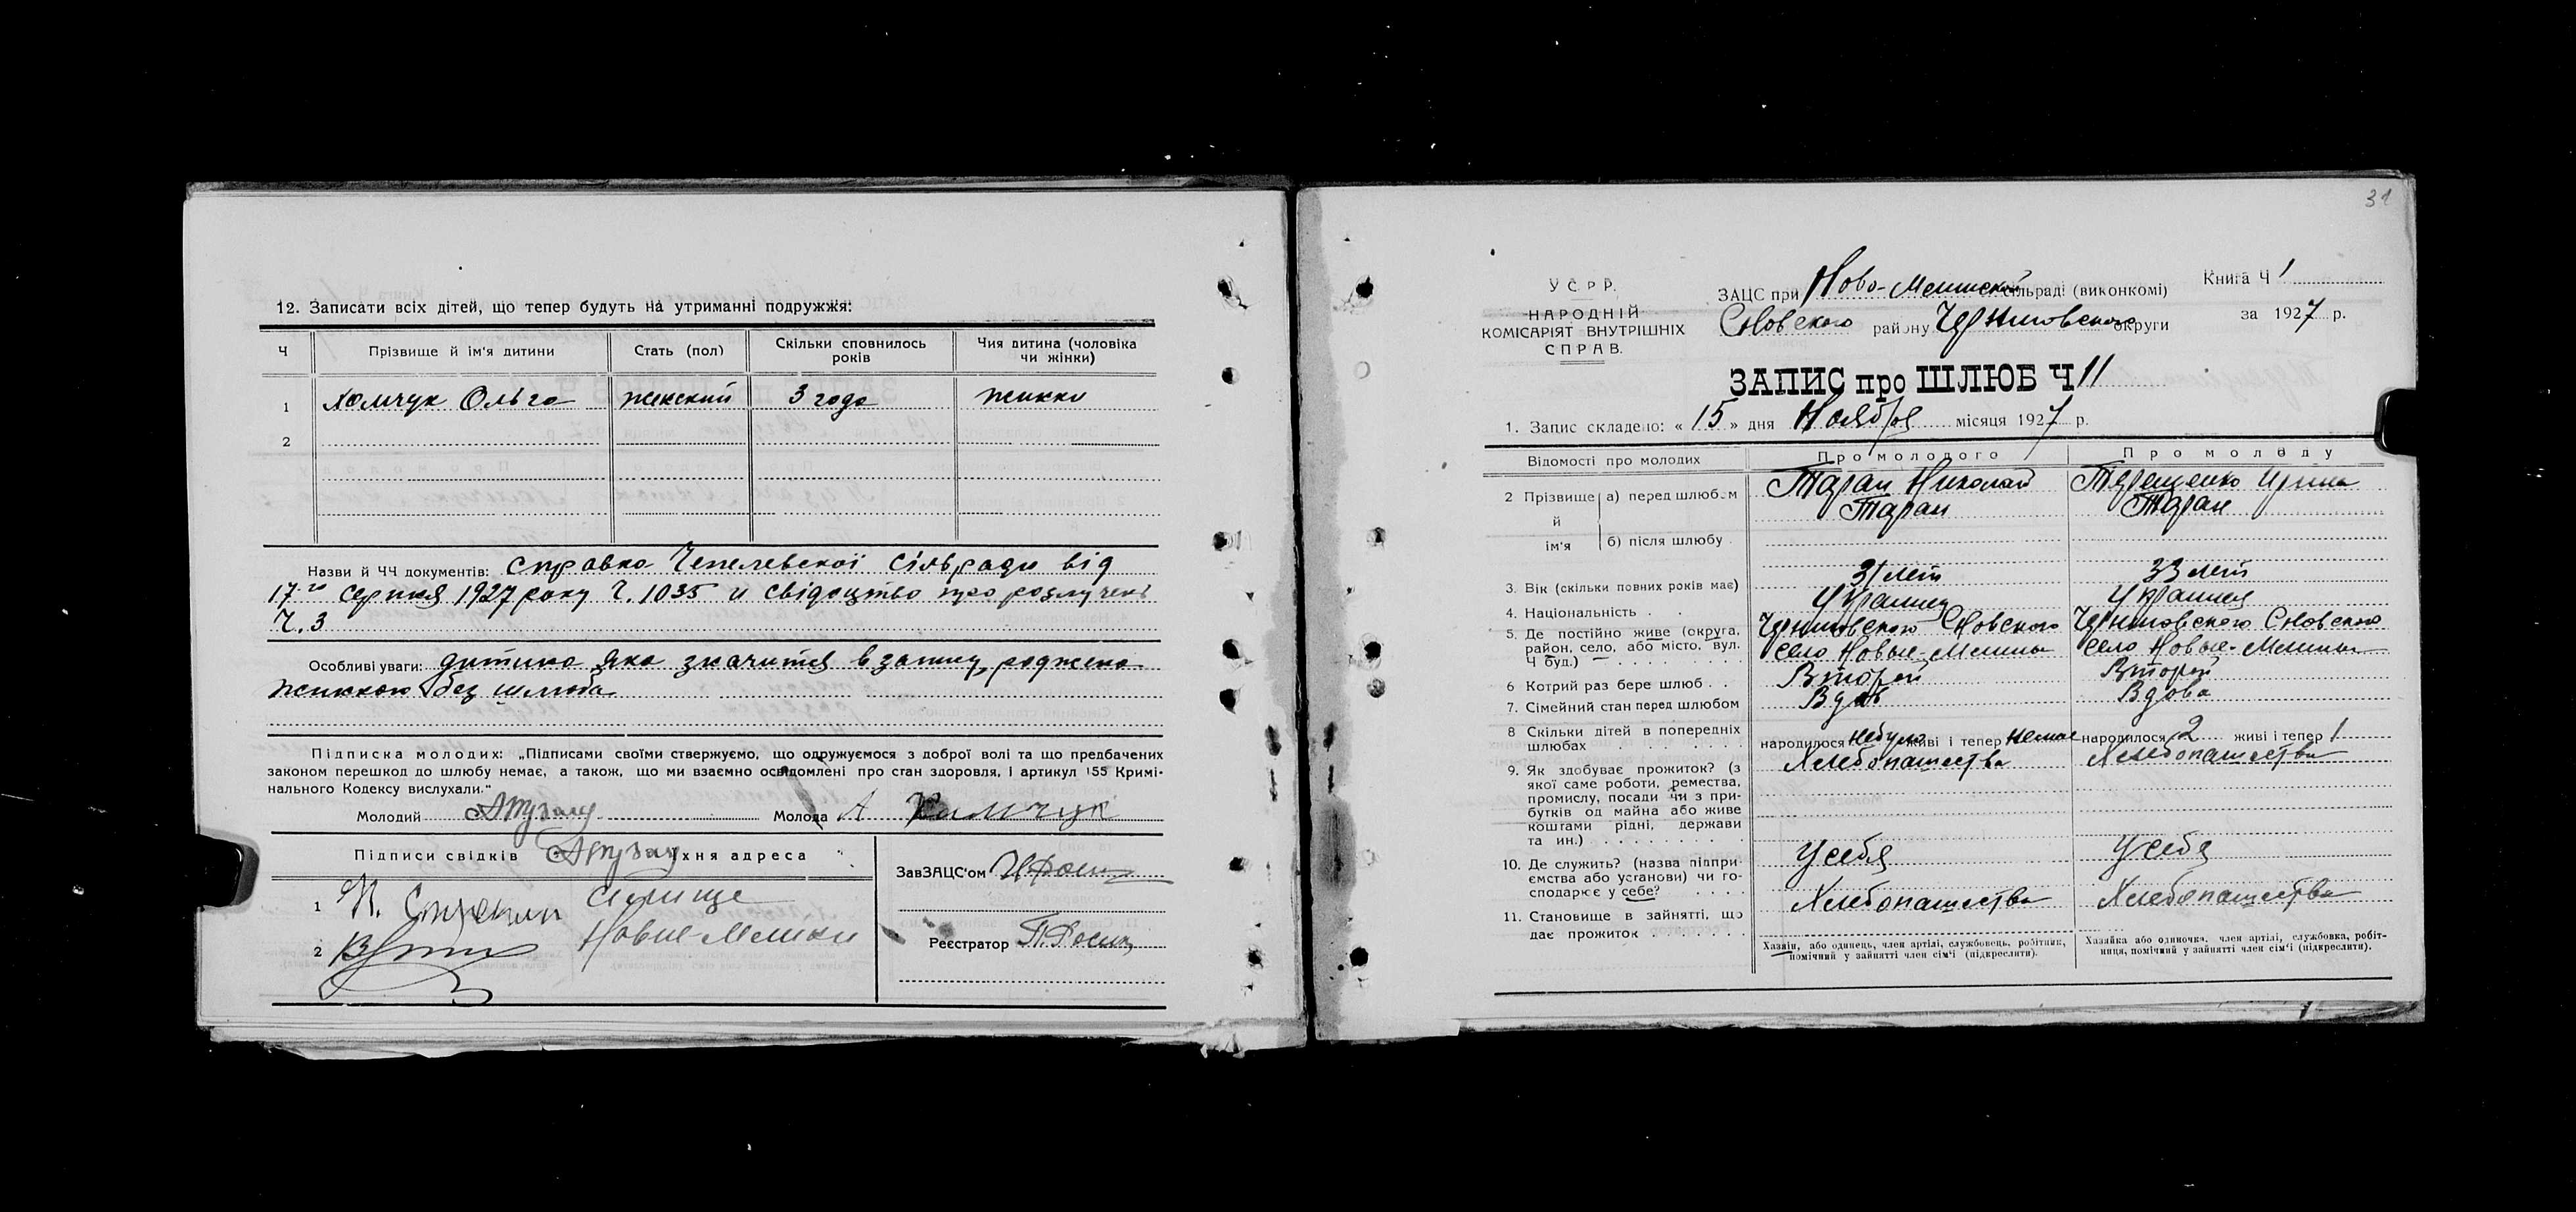 12. Записати всіх дітей, що тепер будуть на утриманні подружжя:
Ч Прізвище й ім'я дитини Стать (пол) Скільки сповнилось років Чия дитина (чоловіка чи жінки)
1 Хомчук Ольга женский 3 года жинки
2
Назви й ЧЧ документів: справка Чепелевскої сільради від
17-го серпня 1927 року Ч. 1035 и свідоцтво про розлучень
Ч. 3
Особливі уваги: дитина яка значится в запису, роджена
жинкою без шлюба
Підписка молодих: „Підписами своїми стверджуємо, що одружуємося з доброї волі та що предбачених
законом перешкод до шлюбу немає, а також, що ми взаємно освідомлені про стан здоровля, і артикул 155 Кримі-
нального Кодексу вислухали."
Молодий Молода А Хомчук
Підписи свідків їхня адреса
ЗавЗАЦС'ом
1 Н. селище
2 Новие-Млини
Реєстратор
31
УСРР.
НАРОДНІЙ
КОМІСАРІЯТ ВНУТРІШНІХ
СПРАВ.
ЗАЦС при Ново-Млинской сільраді (виконкомі)
Сновского району Черниговского округи
Книга Ч 1
за 1927 р.
ЗАПИС про ШЛЮБ Ч 11
1. Запис складено: « 15 » дня Ноября місяця 1927 р.
Відомості про молодих Про молодого Про молоду
2 Прізвище й ім'я а) перед шлюбом Таран Николай Терещенко Ирина
Таран Таран
б) після шлюбу
3. Вік (скільки повних років має) 31 лет 33 лет
4. Національність Украинец Украинец
5. Де постійно живе (округа, район, село, або місто, вул. Ч буд.) Черниговского Сновского село Новые-Млины Черниговского Сновского село Новые-Млины
6 Котрий раз бере шлюб Второй Второй
7. Сімейний стан перед шлюбом Вдов Вдова
8 Скільки дітей в попередніх шлюбах народилося небуло живі і тепер немає народилося 2 живі і тепер 1
9. Як здобуває прожиток? (з якої саме роботи, ремества, промислу, посади чи з прибутків од майна або живе коштами рідні, держави та ин.) Хлебопашества Хлебопашества
10. Де служить? (назва підприємства або установи) чи господарює у себе? У себя У себя
11. Становище в зайнятті, що дає прожиток Хлебопашества Хлебопашества
Хазяїн, або одинець, член артілі, службовець, робітник, помічний у зайнятті член сім'ї (підкреслити).
Хазяйка або одиночка, член артілі, службовка, робітниця, помічний у зайнятті член сім'ї (підкреслити).